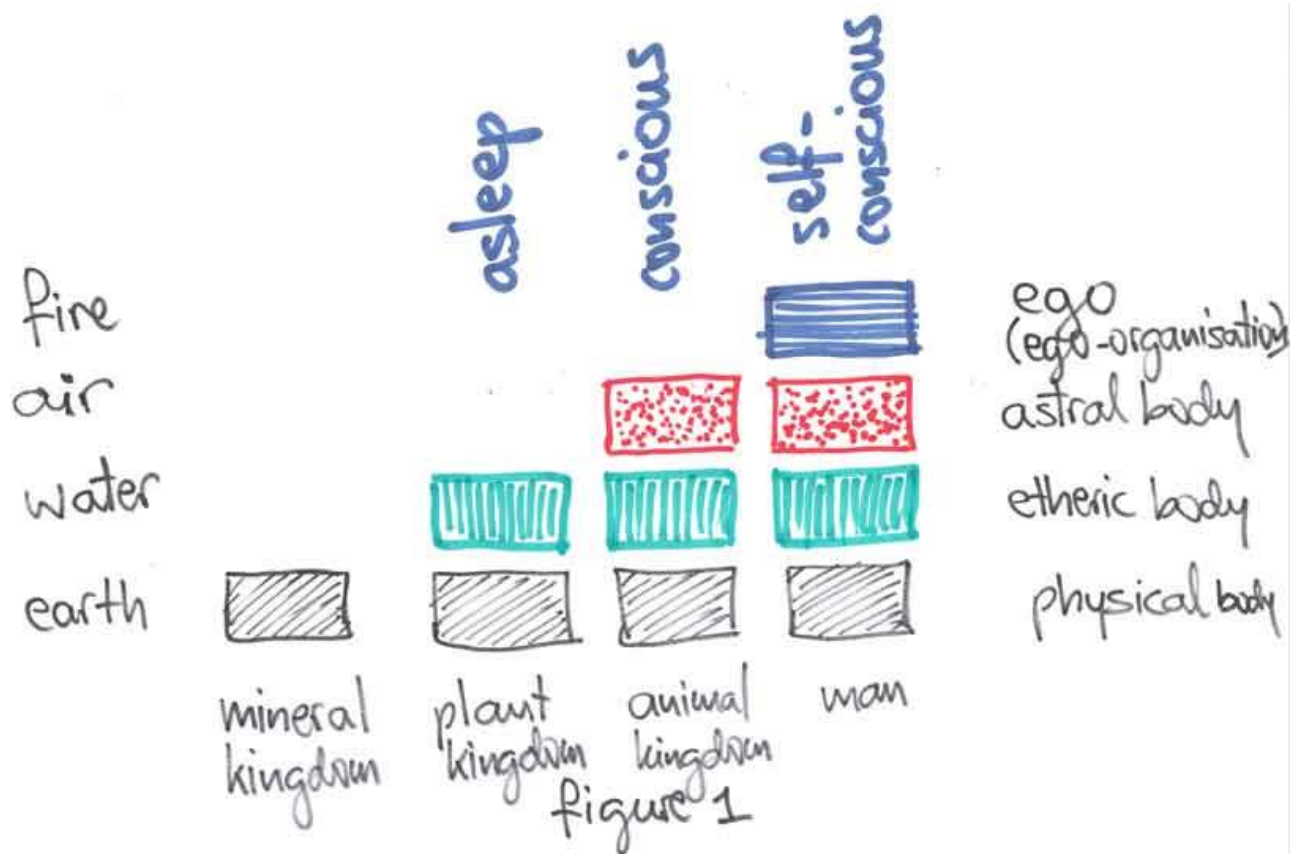 asleep
conscious
self-
conscious
fire
ego
(ego-organisation)
air
astral body
water
etheric body
earth
physical body
mineral
kingdom
plant
kingdom
animal
kingdom
man
figure 1